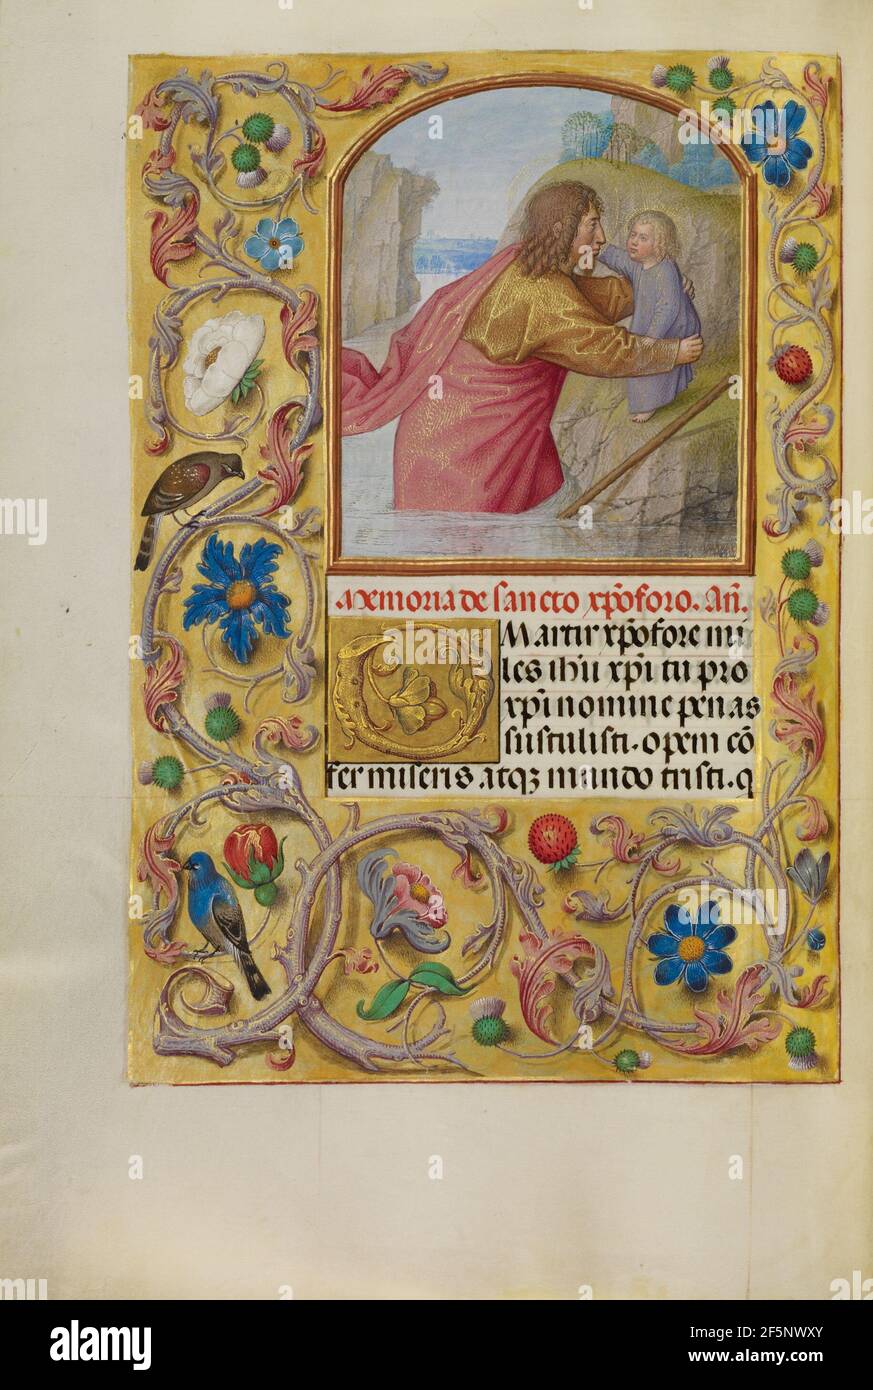 Memoria de sancto xp̄oforo. Añ.
Martir xp̄ofore mi
les ih̄u xp̄i tu pro
xp̄i nomine penas
sustulisti. opem cō
fer miseris atqz mundo tristi. q
a
alamy
Image ID: 2F5NWXY
www.alamy.com